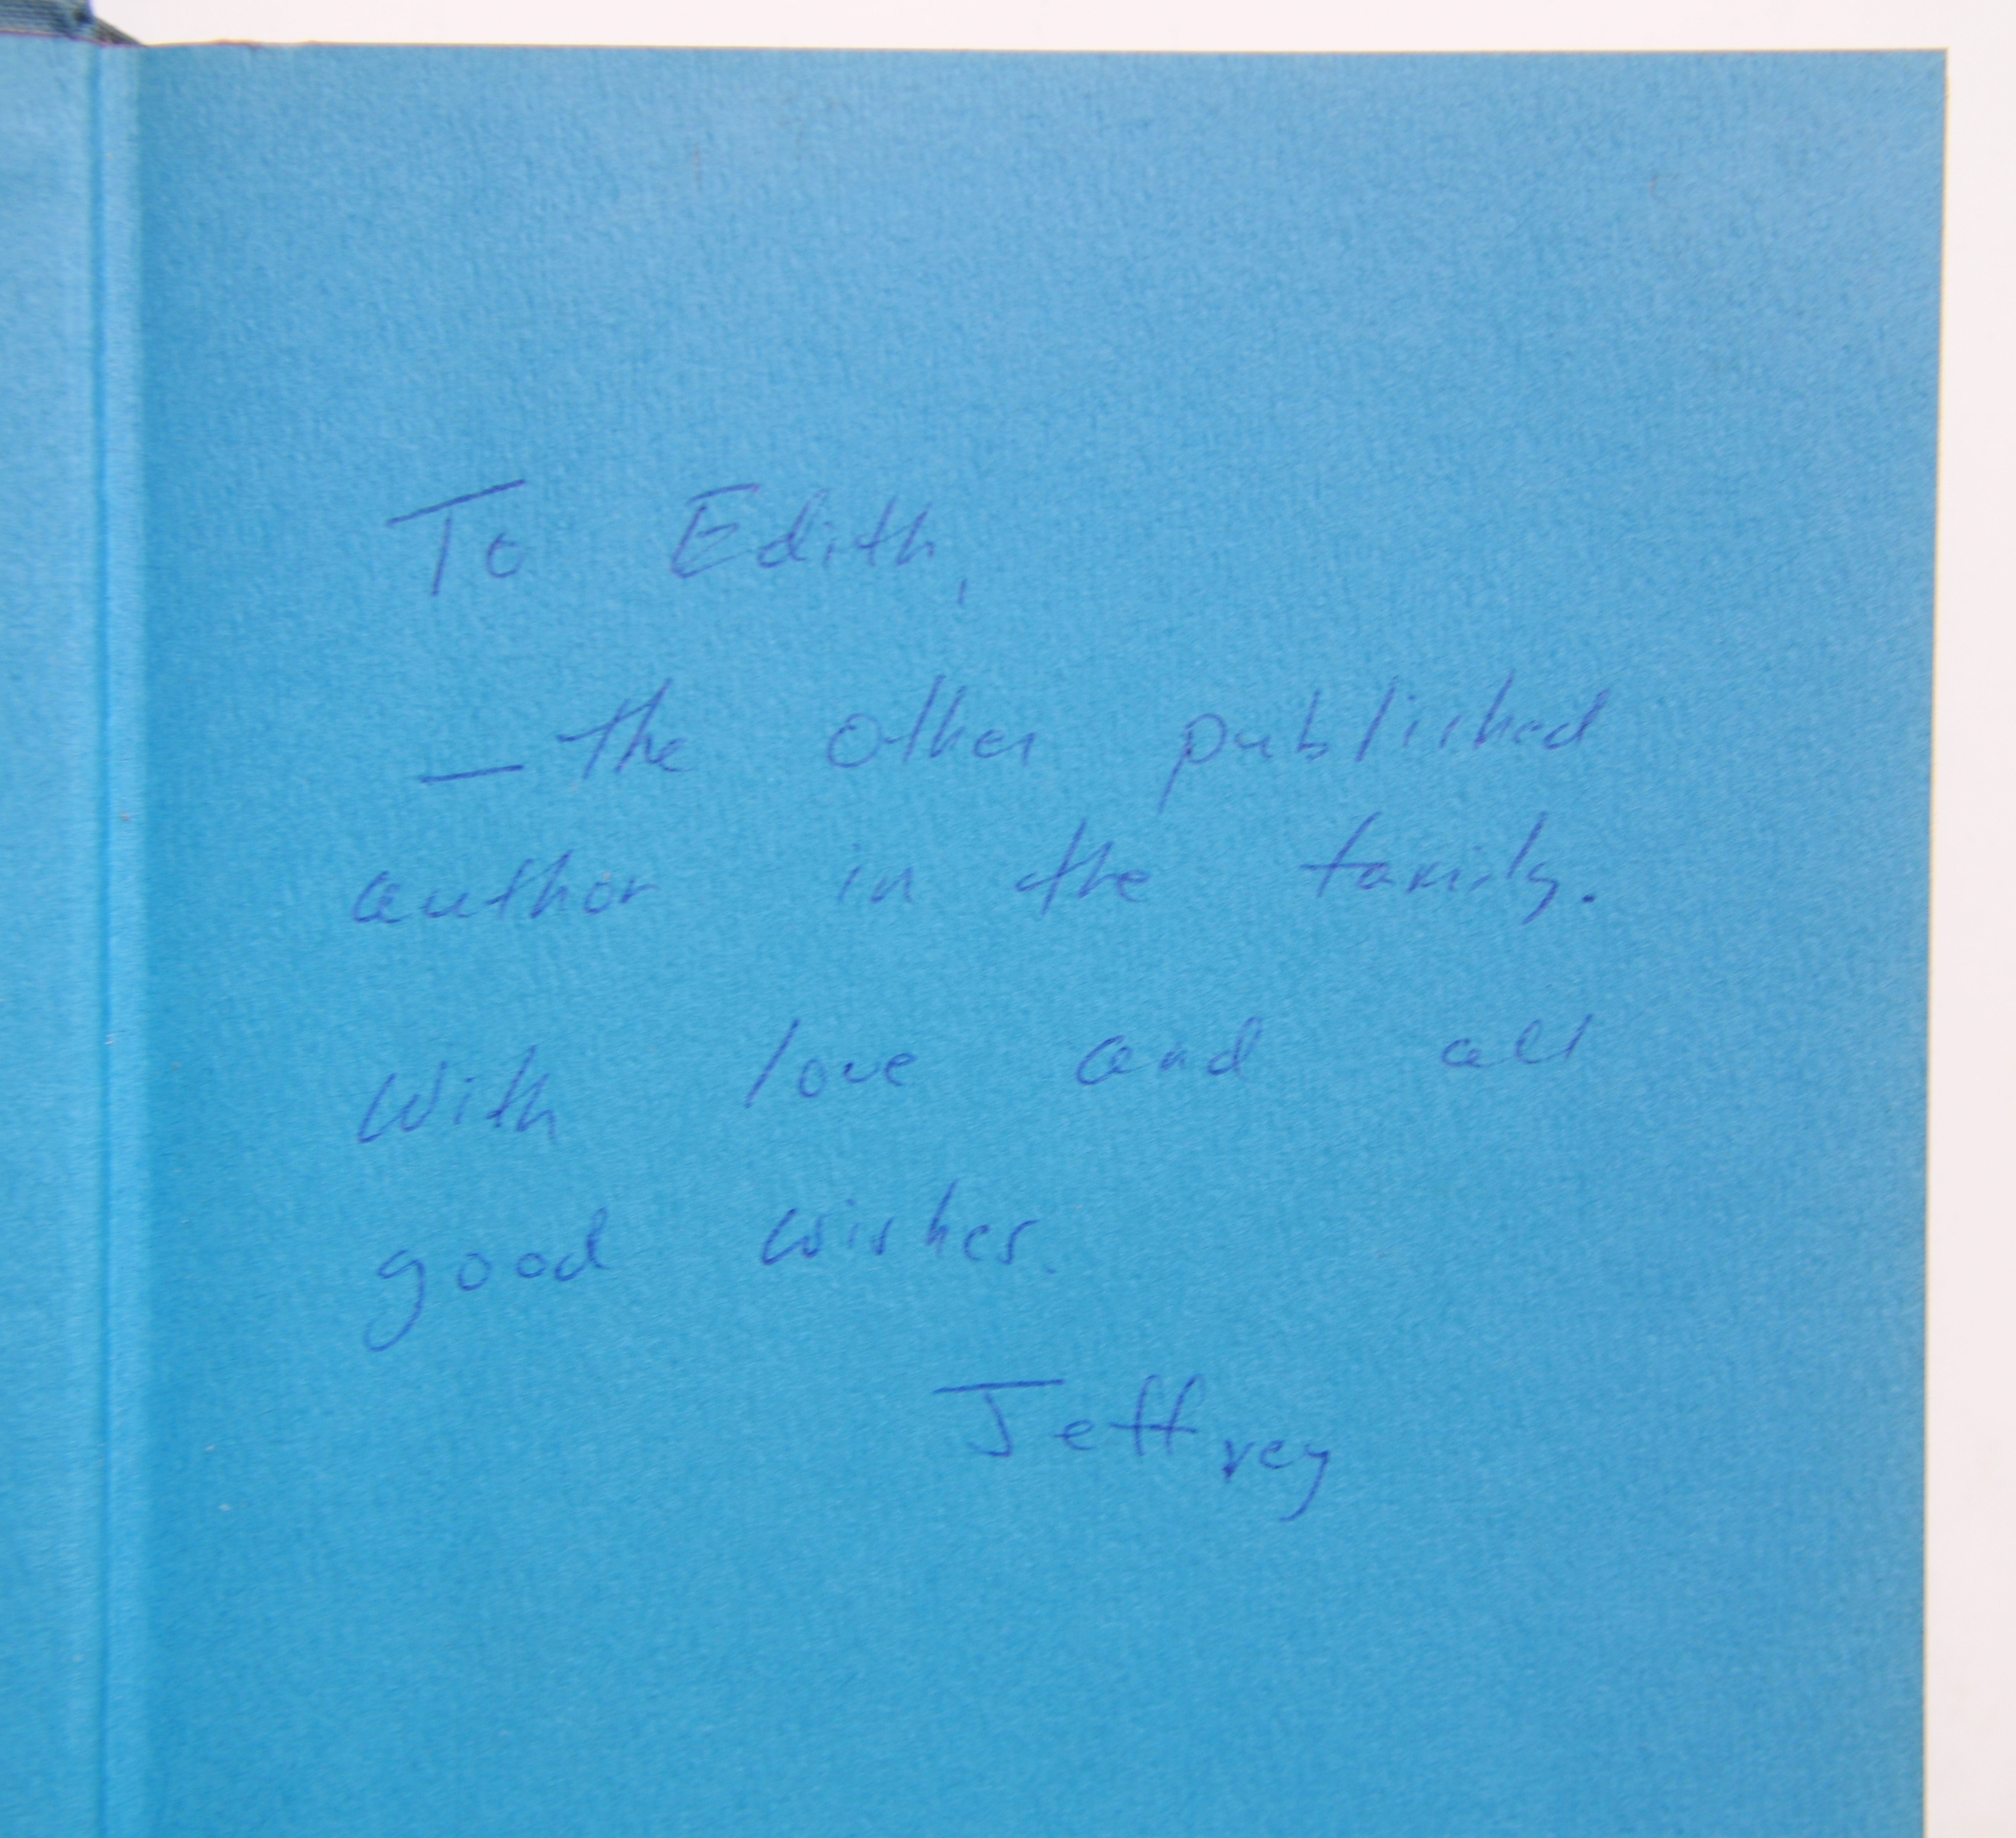 To Edith,
— the other published
author in the family.
With love and all
good wishes.
Jeffrey